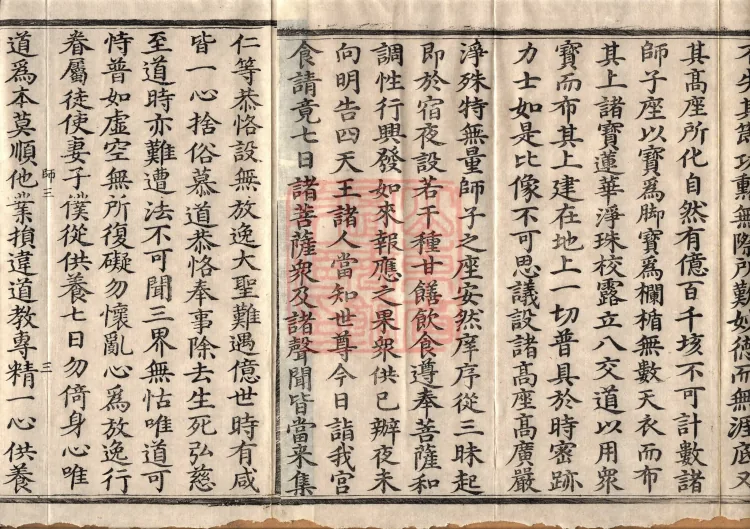 其高座所化自然有億百千垓不可計數諸
師子座以寶爲脚寶爲欄楯無數天衣而布
其上諸寶蓮華淨珠校露立八交道以用衆
寶而布其上建在地上一切普具於時密跡
力士如是比像不可思議設諸高座高廣嚴
淨殊特無量師子之座安然庠序從三昧起
即於宿夜設若干種甘饍飲食遵奉菩薩和
調性行興發如來報應之果衆供已辦夜未
向明告四天王諸人當知世尊今日詣我宮
食請竟七日諸菩薩衆及諸聲聞皆當來集
仁等恭恪設無放逸大聖難遇億世時有咸
皆一心捨俗慕道恭恪奉事除去生死弘慈
至道時亦難遭法不可聞三界無怙唯道可
恃普如虛空無所復礙勿懷亂心爲放逸行
眷屬徒使妻子僕從供養七日勿倚身心唯
師三 三
道爲本莫順他業損違道教專精一心供養